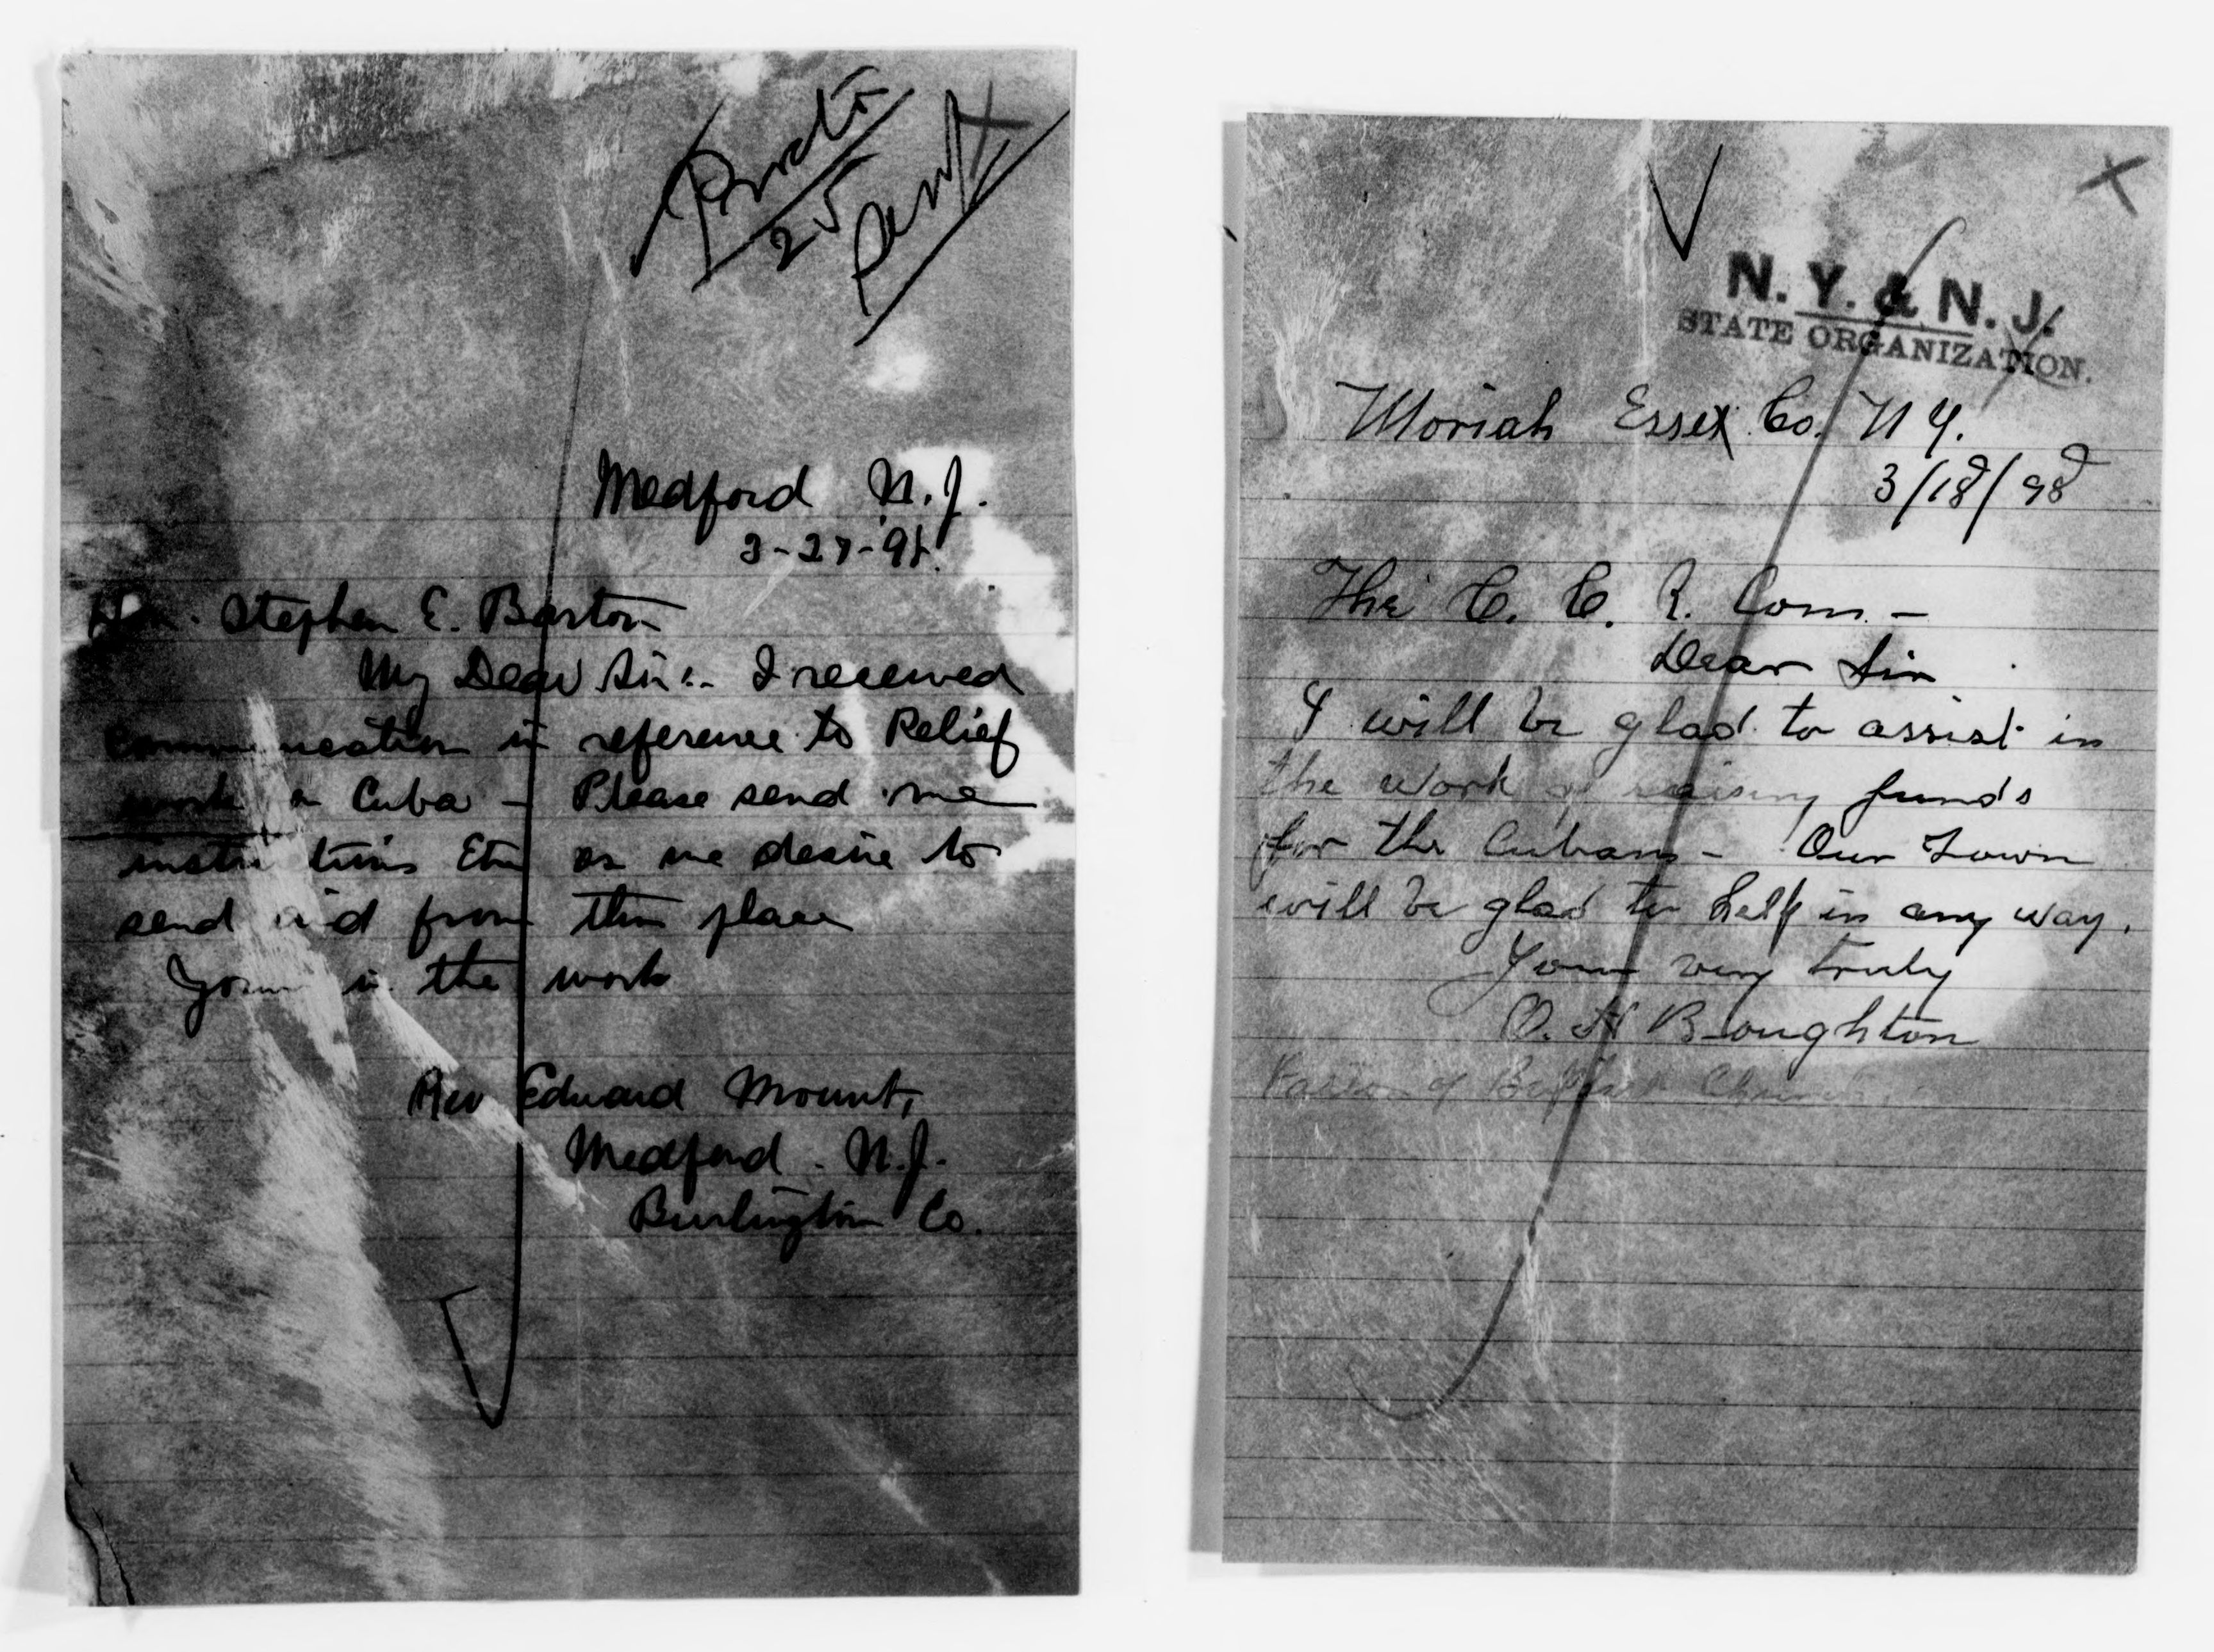 25
X
Medford N.J.
3-27-98.
Hon. Stephen E. Barton
My Dear Sir:- I received
communication in reference to Relief
work in Cuba - Please send me
instructions Etc as we desire to
send aid from this place
Yours in the work
Rev Edward Mount,
Medford. N.J.
Burlington Co.
X
N. Y. & N. J.
STATE ORGANIZATION.
Moriah Essex Co. N Y.
3/18/98
The C. C. R. Com. -
Dear Sir
I will be glad to assist in
the work of raising funds
for the Cubans - Our Town
will be glad to help in any way.
Yours very truly
O. H Boughton
Pastor of Baptist Church.